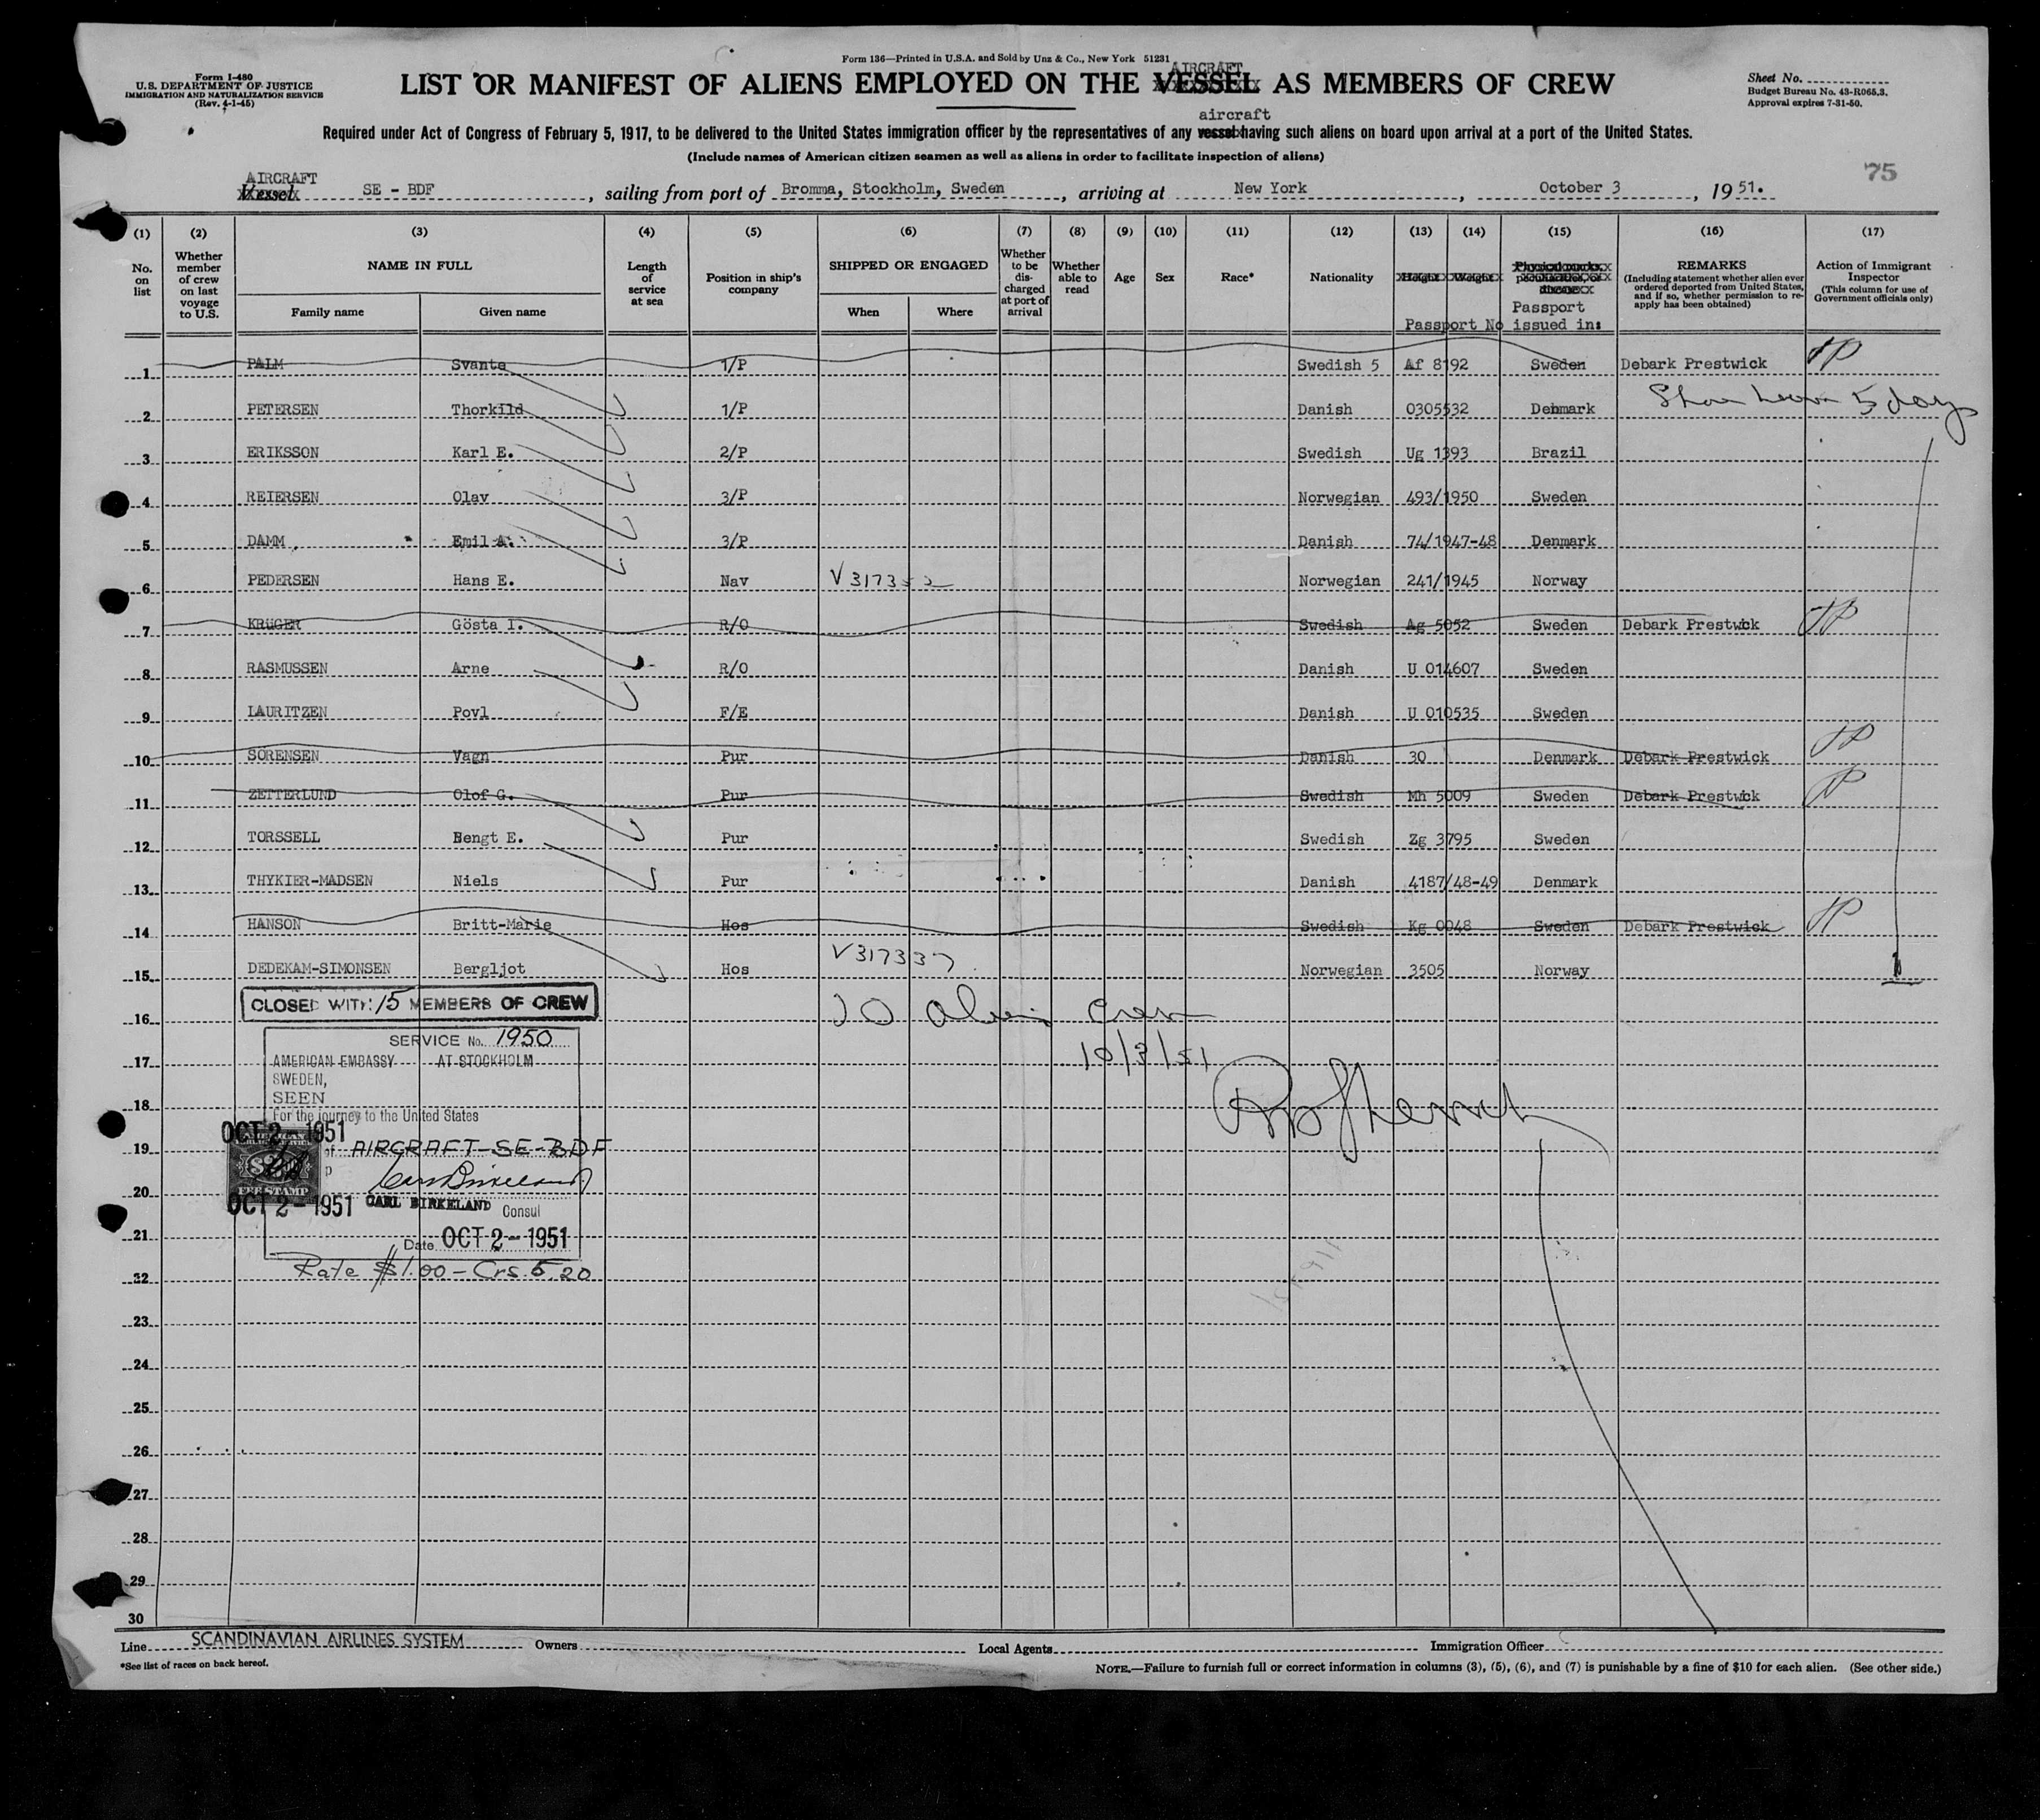 Form 136—Printed in U.S.A. and Sold by Unz & Co., New York 51231
Form I-480
U.S. DEPARTMENT OF JUSTICE
IMMIGRATION AND NATURALIZATION SERVICE
(Rev. 4-1-45)
AIRCRAFT
LIST OR MANIFEST OF ALIENS EMPLOYED ON THE VESSEL AS MEMBERS OF CREW
Sheet No.
Budget Bureau No. 43-R065.3.
Approval expires 7-31-50.
aircraft
Required under Act of Congress of February 5, 1917, to be delivered to the United States immigration officer by the representatives of any vessel having such aliens on board upon arrival at a port of the United States.
(Include names of American citizen seamen as well as aliens in order to facilitate inspection of aliens)
75
AIRCRAFT
Vessel SE - BDF, sailing from port of Bromma, Stockholm, Sweden, arriving at New York, October 3, 1951.
(1) (2) (3) (4) (5) (6) (7) (8) (9) (10) (11) (12) (13) (14) (15) (16) (17)
No. on list
Whether member of crew on last voyage to U.S.
NAME IN FULL
Family name
Given name
Length of service at sea
Position in ship's company
SHIPPED OR ENGAGED
When
Where
Whether to be discharged at port of arrival
Whether able to read
Age
Sex
Race*
Nationality
Height
Weight
Passport No
Physical marks, peculiarities, or disease
Passport issued in:
REMARKS
(Including statement whether alien ever ordered deported from United States, and if so, whether permission to reapply has been obtained)
Action of Immigrant Inspector
(This column for use of Government officials only)
1 PALM Svante 1/P Swedish 5 Af 8192 Sweden Debark Prestwick
2 PETERSEN Thorkild 1/P Danish 0305532 Denmark 5 days
3 ERIKSSON Karl E. 2/P Swedish Ug 1393 Brazil
4 REIERSEN Olav 3/P Norwegian 493/1950 Sweden
5 DAMM Emil A. 3/P Danish 74/1947-48 Denmark
6 PEDERSEN Hans E. Nav Norwegian 241/1945 Norway
7 KRÜGER Gösta I. R/O Swedish Ag 5052 Sweden Debark Prestwick
8 RASMUSSEN Arne R/O Danish U 014607 Sweden
9 LAURITZEN Povl F/E Danish U 010535 Sweden
10 SORENSEN Vagn Pur Danish 30 Denmark Debark Prestwick
11 ZETTERLUND Olof G. Pur Swedish Mh 5009 Sweden Debark Prestwick
12 TORSSELL Bengt E. Pur Swedish Zg 3795 Sweden
13 THYKIER-MADSEN Niels Pur Danish 4187/48-49 Denmark
14 HANSON Britt-Marie Hos Swedish Kg 0048 Sweden Debark Prestwick
V317337
15 DEDEKAM-SIMONSEN Bergljot Hos Norwegian 3505 Norway
CLOSED WITH 15 MEMBERS OF CREW
16 10 Alien Crew
SERVICE No. 1950
17 AMERICAN EMBASSY AT STOCKHOLM 10/3/51
SWEDEN,
SEEN
18
For the journey to the United States
OCT 2 - 1951
19 of AIRCRAFT-SE-BDF
FEE STAMP
20
OCT 2 - 1951 CARL BIRKELAND Consul
21 Date OCT 2 - 1951
Rate $1.00 - Crs. 5.20
22
23
24
25
26
27
28
29
30
Line SCANDINAVIAN AIRLINES SYSTEM Owners Local Agents Immigration Officer
*See list of races on back hereof.
NOTE.—Failure to furnish full or correct information in columns (3), (5), (6), and (7) is punishable by a fine of $10 for each alien. (See other side.)